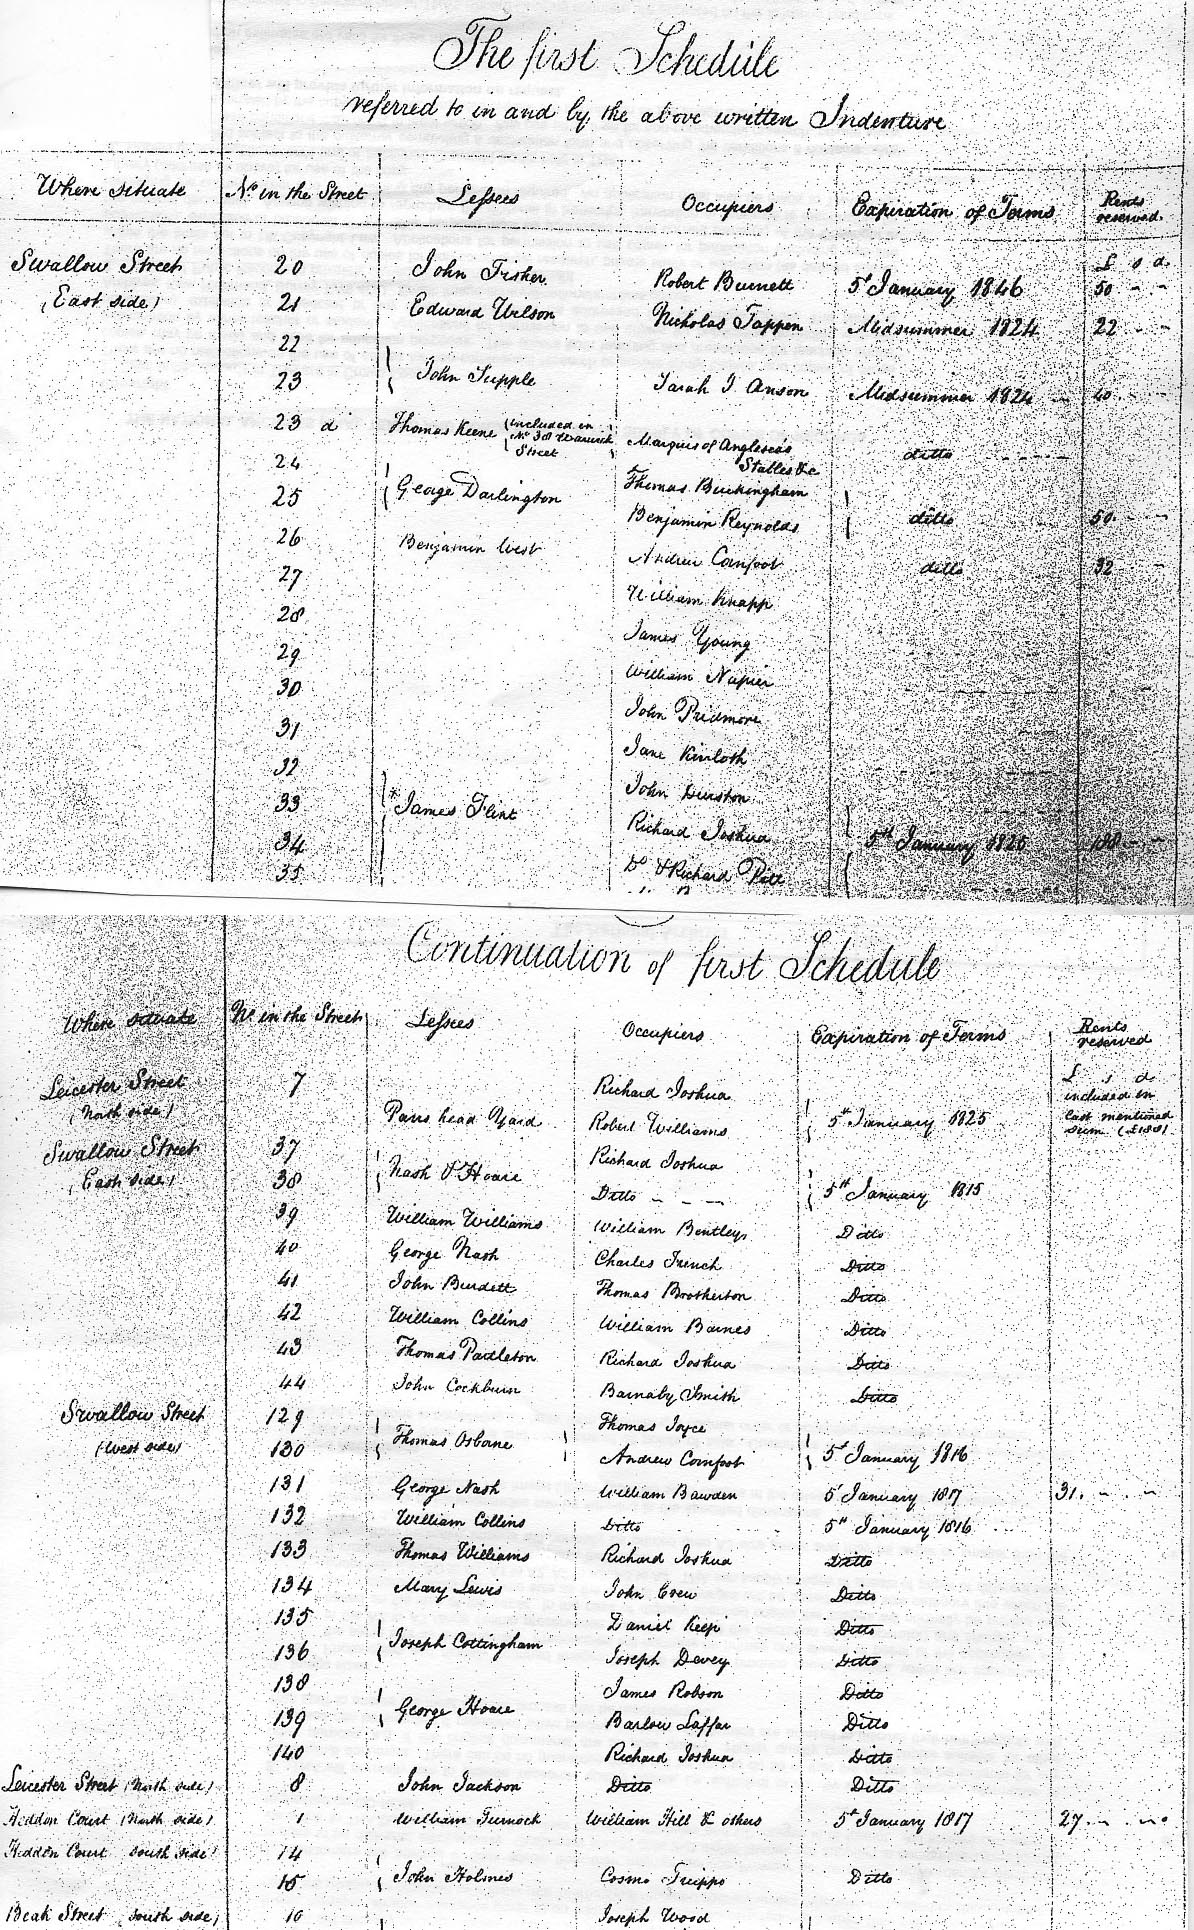 The first Schedule
referred to in and by the above written Indenture
Where situate Nº in the Street Lessees Occupiers Expiration of Terms Rents reserved
£ s d
Swallow Street 20 John Fisher Robert Burnett 5th January 1846 50 - -
(East side) 21 Edward Wilson Nicholas Tappen Midsummer 1824 22 - -
22
23 John Supple Sarah J Anson Midsummer 1824 40 - -
23 d Thomas Keene (included in Nº 38 Warwick Street) Marquis of Anglesea's Stables &c ditto
24 Thomas Buckingham
25 George Darlington Benjamin Reynolds ditto 50 - -
26 Benjamin West Andrew Cornfoot ditto 32 - -
27 William Knapp
28 James Young
29 William Napier
30 John Pridmore
31 Jane Kinloth
32 John Durston
33 James Flint Richard Joshua
34 5th January 1825 180 - -
35 Do & Richard
Continuation of first Schedule
Where situate Nº in the Street Lessees Occupiers Expiration of Terms Rents reserved
£ s d
Leicester Street 7 Richard Joshua included in
(North side) Pans head Yard Robert Williams 5th January 1825 last mentioned sum (£180)
Swallow Street 37 Richard Joshua
(East side) 38 Nash & Hoare Ditto - - - 5th January 1815
39 William Williams William Bentleys Ditto
40 George Nash Charles French Ditto
41 John Burdett Thomas Brotherton Ditto
42 William Collins William Barnes Ditto
43 Thomas Padleton Richard Joshua Ditto
44 John Cockburn Barnaby Smith Ditto
Swallow Street 129 Thomas Joyce
(West side) 130 Thomas Osborne Andrew Cornfoot 5th January 1816
131 George Nash William Bawden 5th January 1817 31 - -
132 William Collins Ditto 5th January 1816
133 Thomas Williams Richard Joshua Ditto
134 Mary Lewis John Crew Ditto
135 Daniel Keep Ditto
136 Joseph Cottingham Joseph Davey Ditto
138 James Robson Ditto
139 George Hoare Barlow Laffar Ditto
140 Richard Joshua Ditto
Leicester Street (North side) 8 John Jackson Ditto Ditto
Heddon Court (North side) 1 William Turnock William Hill & others 5th January 1817 27 - -
Heddon Court (South side) 14
15 John Holmes Cosmo Ditto
Beak Street (South side) 10 Joseph Wood